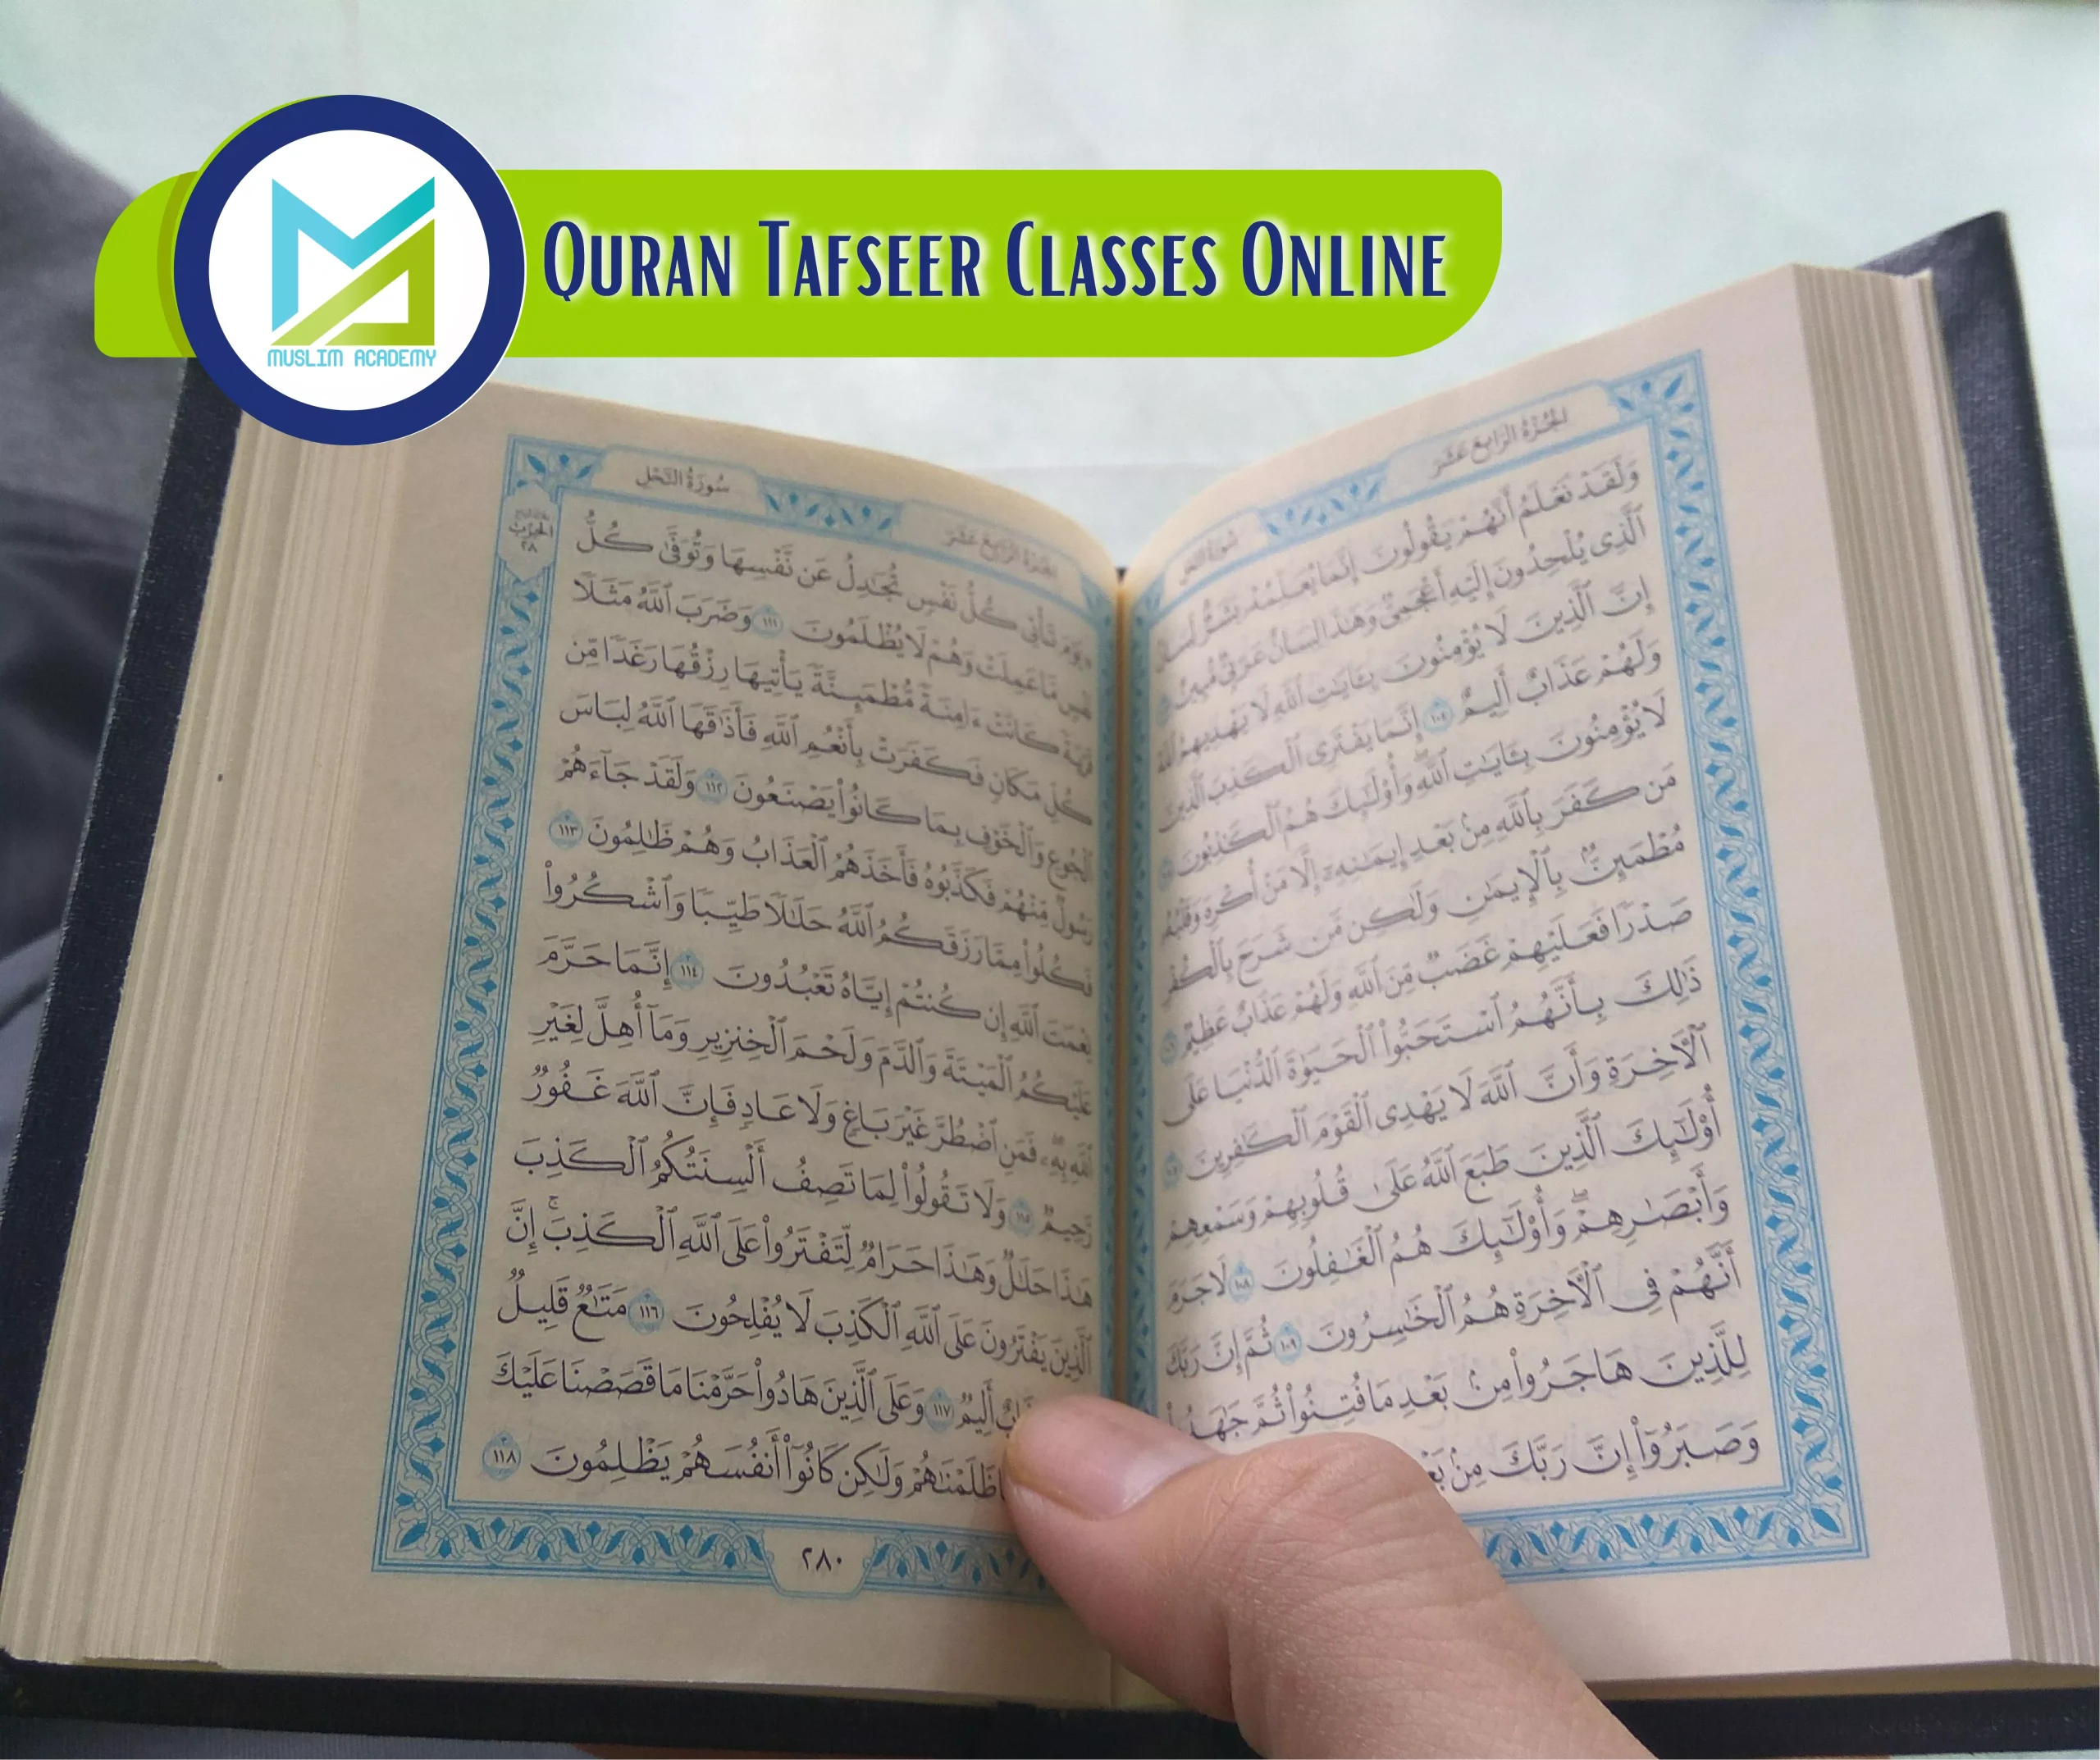 MUSLIM ACADEMY
QURAN TAFSEER CLASSES ONLINE
الجزء الرابع عشر
سورة النحل
وَلَقَدْ نَعْلَمُ أَنَّهُمْ يَقُولُونَ إِنَّمَا يُعَلِّمُهُۥ بَشَرٌ لِّسَانُ
ٱلَّذِى يُلْحِدُونَ إِلَيْهِ أَعْجَمِىٌّ وَهَٰذَا لِسَانٌ عَرَبِىٌّ مُّبِينٌ
إِنَّ ٱلَّذِينَ لَا يُؤْمِنُونَ بِـَٔايَٰتِ ٱللَّهِ لَا يَهْدِيهِمُ ٱللَّهُ
وَلَهُمْ عَذَابٌ أَلِيمٌ ١٠٤ إِنَّمَا يَفْتَرِى ٱلْكَذِبَ ٱلَّذِينَ
لَا يُؤْمِنُونَ بِـَٔايَٰتِ ٱللَّهِ ۖ وَأُو۟لَٰٓئِكَ هُمُ ٱلْكَٰذِبُونَ
مَن كَفَرَ بِٱللَّهِ مِنۢ بَعْدِ إِيمَٰنِهِۦٓ إِلَّا مَنْ أُكْرِهَ وَقَلْبُهُۥ
مُطْمَئِنٌّۢ بِٱلْإِيمَٰنِ وَلَٰكِن مَّن شَرَحَ بِٱلْكُفْرِ
صَدْرًا فَعَلَيْهِمْ غَضَبٌ مِّنَ ٱللَّهِ وَلَهُمْ عَذَابٌ عَظِيمٌ
ذَٰلِكَ بِأَنَّهُمُ ٱسْتَحَبُّوا۟ ٱلْحَيَوٰةَ ٱلدُّنْيَا عَلَى
ٱلْـَٔاخِرَةِ وَأَنَّ ٱللَّهَ لَا يَهْدِى ٱلْقَوْمَ ٱلْكَٰفِرِينَ
أُو۟لَٰٓئِكَ ٱلَّذِينَ طَبَعَ ٱللَّهُ عَلَىٰ قُلُوبِهِمْ وَسَمْعِهِمْ
وَأَبْصَٰرِهِمْ ۖ وَأُو۟لَٰٓئِكَ هُمُ ٱلْغَٰفِلُونَ ١٠٨ لَا جَرَمَ
أَنَّهُمْ فِى ٱلْـَٔاخِرَةِ هُمُ ٱلْخَٰسِرُونَ ١٠٩ ثُمَّ إِنَّ رَبَّكَ
لِلَّذِينَ هَاجَرُوا۟ مِنۢ بَعْدِ مَا فُتِنُوا۟ ثُمَّ جَٰهَدُوا۟
وَصَبَرُوٓا۟ إِنَّ رَبَّكَ مِنۢ
الجزء الرابع عشر
سورة النحل
الحزب
٢٨
يَوْمَ تَأْتِى كُلُّ نَفْسٍ تُجَٰدِلُ عَن نَّفْسِهَا وَتُوَفَّىٰ كُلُّ
نَفْسٍ مَّا عَمِلَتْ وَهُمْ لَا يُظْلَمُونَ ١١١ وَضَرَبَ ٱللَّهُ مَثَلًا
قَرْيَةً كَانَتْ ءَامِنَةً مُّطْمَئِنَّةً يَأْتِيهَا رِزْقُهَا رَغَدًا مِّن
كُلِّ مَكَانٍ فَكَفَرَتْ بِأَنْعُمِ ٱللَّهِ فَأَذَٰقَهَا ٱللَّهُ لِبَاسَ
ٱلْجُوعِ وَٱلْخَوْفِ بِمَا كَانُوا۟ يَصْنَعُونَ ١١٢ وَلَقَدْ جَآءَهُمْ
رَسُولٌ مِّنْهُمْ فَكَذَّبُوهُ فَأَخَذَهُمُ ٱلْعَذَابُ وَهُمْ ظَٰلِمُونَ ١١٣
فَكُلُوا۟ مِمَّا رَزَقَكُمُ ٱللَّهُ حَلَٰلًا طَيِّبًا وَٱشْكُرُوا۟
نِعْمَتَ ٱللَّهِ إِن كُنتُمْ إِيَّاهُ تَعْبُدُونَ ١١٤ إِنَّمَا حَرَّمَ
عَلَيْكُمُ ٱلْمَيْتَةَ وَٱلدَّمَ وَلَحْمَ ٱلْخِنزِيرِ وَمَآ أُهِلَّ لِغَيْرِ
ٱللَّهِ بِهِۦ ۖ فَمَنِ ٱضْطُرَّ غَيْرَ بَاغٍ وَلَا عَادٍ فَإِنَّ ٱللَّهَ غَفُورٌ
رَّحِيمٌ ١١٥ وَلَا تَقُولُوا۟ لِمَا تَصِفُ أَلْسِنَتُكُمُ ٱلْكَذِبَ
هَٰذَا حَلَٰلٌ وَهَٰذَا حَرَامٌ لِّتَفْتَرُوا۟ عَلَى ٱللَّهِ ٱلْكَذِبَ ۚ إِنَّ
ٱلَّذِينَ يَفْتَرُونَ عَلَى ٱللَّهِ ٱلْكَذِبَ لَا يُفْلِحُونَ ١١٦ مَتَٰعٌ قَلِيلٌ
أَلِيمٌ ١١٧ وَعَلَى ٱلَّذِينَ هَادُوا۟ حَرَّمْنَا مَا قَصَصْنَا عَلَيْكَ
ظَلَمْنَٰهُمْ وَلَٰكِن كَانُوٓا۟ أَنفُسَهُمْ يَظْلِمُونَ ١١٨
٢٨٠